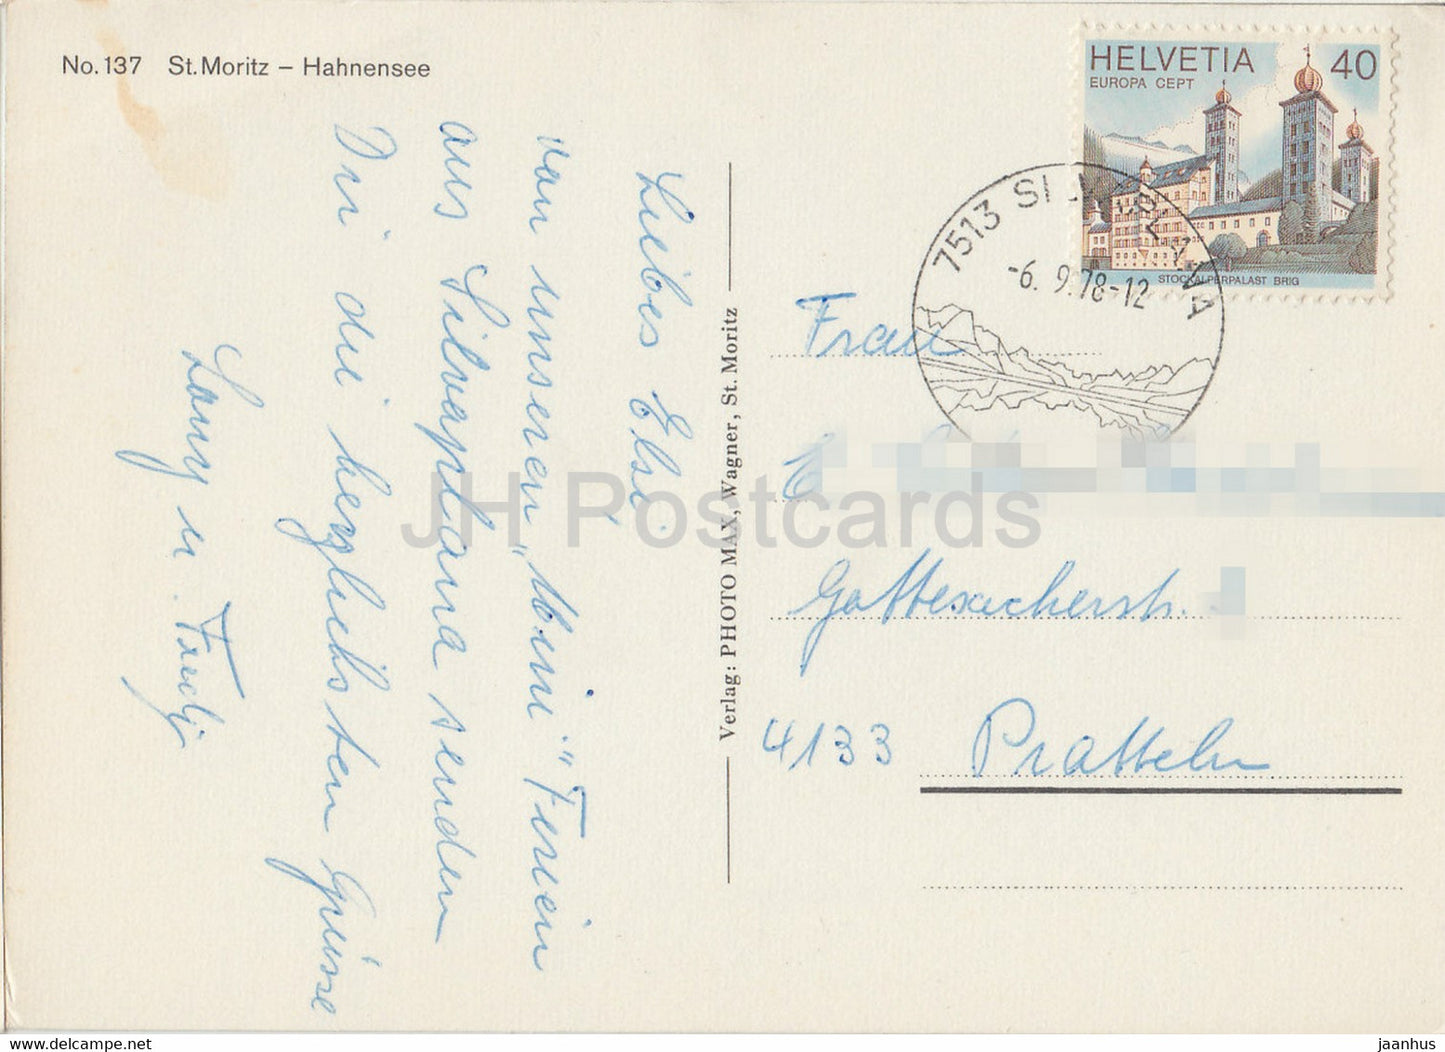 No. 137 St. Moritz – Hahnensee
HELVETIA 40
EUROPA CEPT
STOCKALPERPALAST BRIG
7513 SILVAPLANA
-6. 9.78-12
Liebes Elsi.
von unseren „Mini" Ferien
aus Silvaplana senden
Dir die herzlichsten Grüsse
u. Fredj
Verlag: PHOTO MAX, Wagner, St. Moritz
Frau
Gottesackerstr.
4133 Pratteln
JH Postcards
www.hippostcard.com
jaanhus